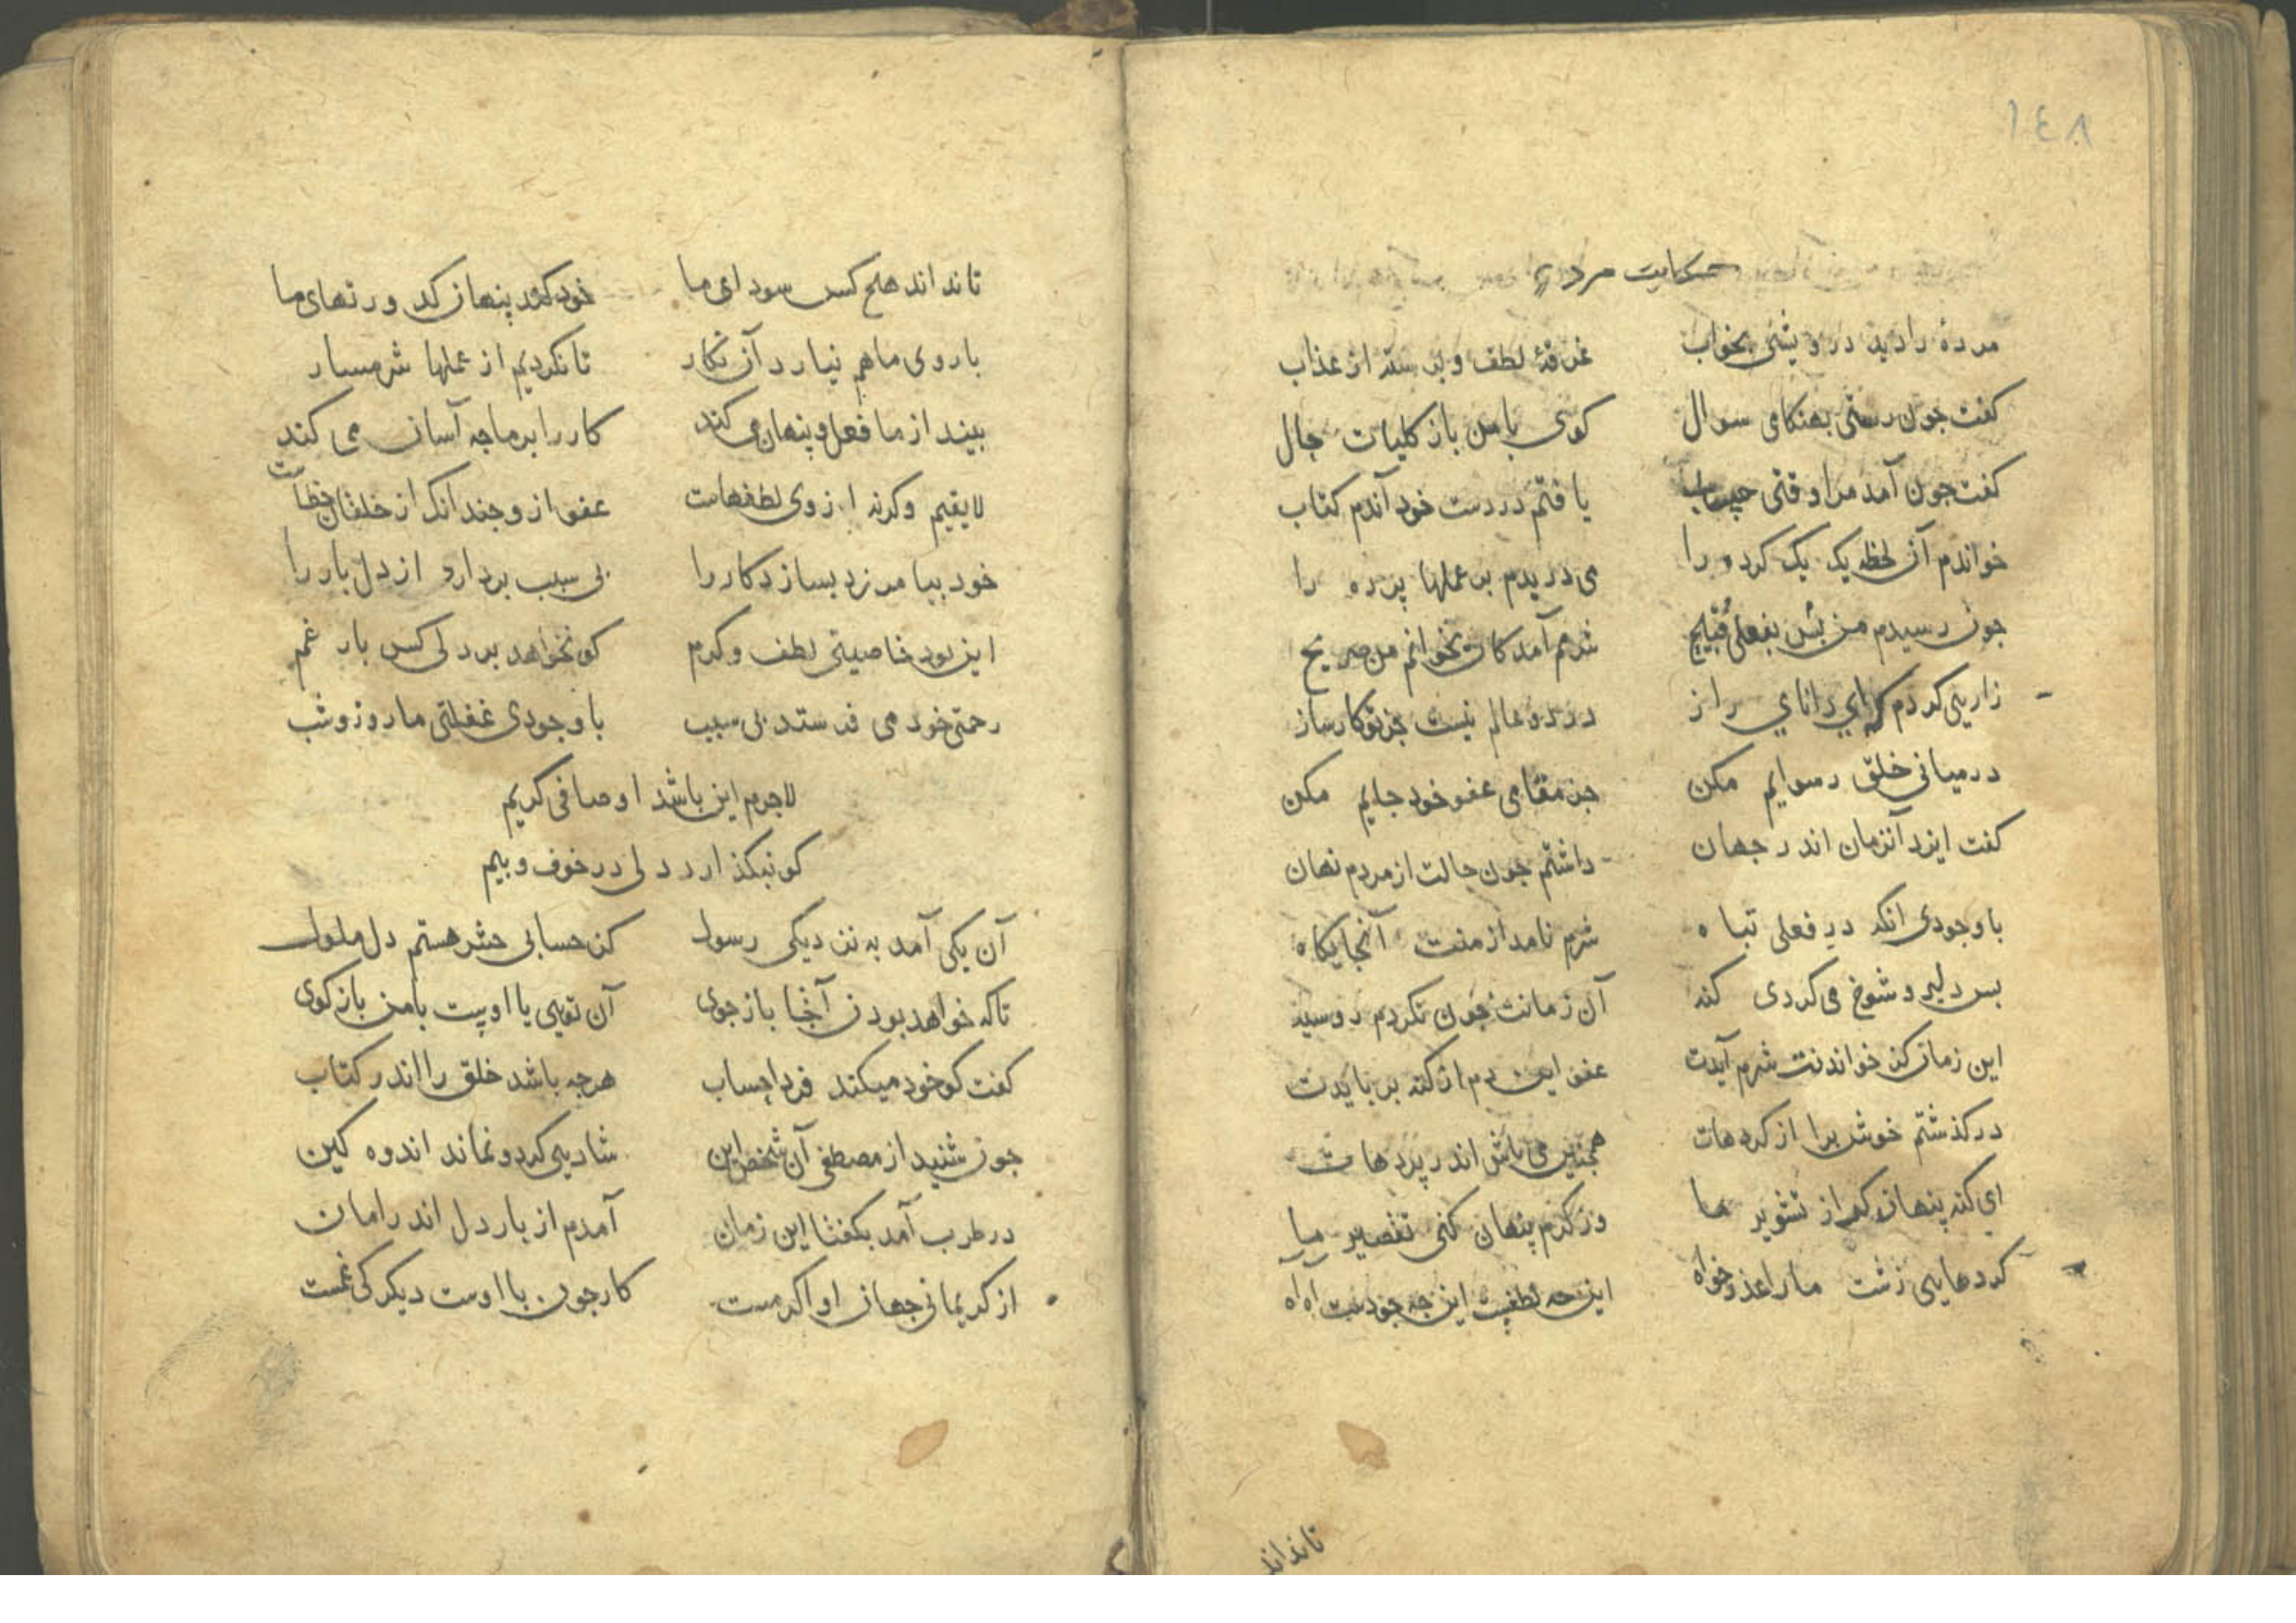 ١٤٨
حکایت مرده
مردهٔ را دید درویشی بخواب غرقهٔ لطف و برسته از عذاب
کفت جون رستی بهنکامی سوال کوی با من باز کلیات حال
کفت جون آمد مرا وقتی حساب یافتم در دست خود آندم کتاب
خواندم آن لحظه یک یک کرده را می دریدم بر عملها پرده را
جون رسیدم من بس بفعلی قبیح شرمم آمد کان نخوانم من صریح
زاریی کردم که ای دانای راز در دو عالم نیست جز تو کارساز
در میانی خلق رسوایم مکن جز مقامی عفو خود جایم مکن
کفت ایزد آنزمان اندر جهان داشتم جون حالت از مردم نهان
با وجودی انکه در فعلی تباه شرم نامد از منت آنجایکاه
بس دلیر و شوخ می کردی کنه آن زمانت جون نکردم روسیه
این زمان کز خواندنت شرم آیدت عفو این دم از کنه بربایدت
در کذشتم خوش برا از کردهات همجنین می باش اندر پردهات
ای کنه پنهان کن از تشویر ما وز کرم پنهان کنی تقصیر ما
کردهایی زشت ما را عذرخواه این جه لطفست این جه جودست اه اه
تانداند
تانداند هیج کس سودای ما خود کند پنهان کند ورتهای ما
با روی ما هم نیارد آن نکار تا نکردیم از عملها شرمسار
بیند از ما فعل و پنهان می کند کار را بر ما جه آسان می کند
لایقیم وکرنه از وی لطفهاست عفو از و جندانک از خلقان خطاست
خود بیامرزد بسازد کار را بی سبب بردارد از دل بار را
این بود خاصیتی لطف و کرم کو نخواهد بر دلی کس بار غم
رحمتی خود می فرستد بی سبب با وجودی غفلتی ما روز و شب
لاجرم این باشد اوصافی کریم
کو نبکذارد دلی در خوف و بیم
آن یکی آمد به نزدیکی رسول کز حسابی حشر هستم دل ملول
تا که خواهد بودن آنجا بازجوی آن تویی یا اوست با من بازکوی
کفت کو خود میکند فردا حساب هرجه باشد خلق را اندر کتاب
جون شنید از مصطفی آن شخص این شادیی کرد و نماند اندوه کین
در طرب آمد بکفتا این زمان آمدم از بار دل اندر امان
از کریمانی جهان او اکرمست کار جون با اوست دیکر کی غمست